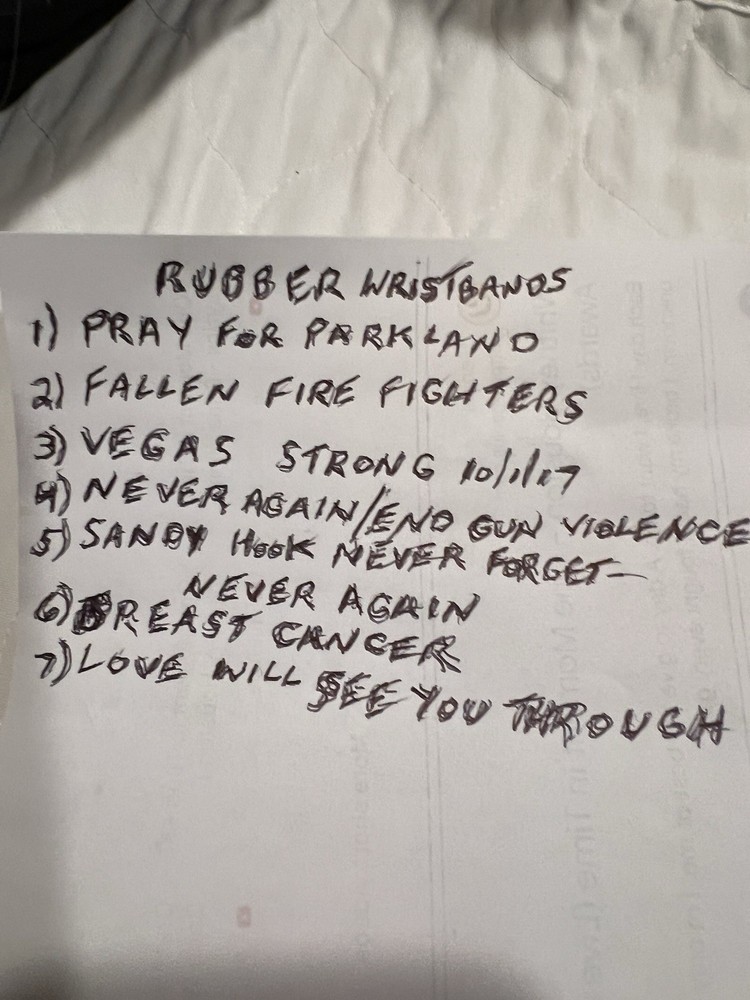 RUBBER WRISTBANDS
1) PRAY FOR PARKLAND
2) FALLEN FIRE FIGHTERS
3) VEGAS STRONG 10/1/17
4) NEVER AGAIN/END GUN VIOLENCE
5) SANDY HOOK NEVER FORGET—
NEVER AGAIN
6) BREAST CANCER
7) LOVE WILL SEE YOU THROUGH